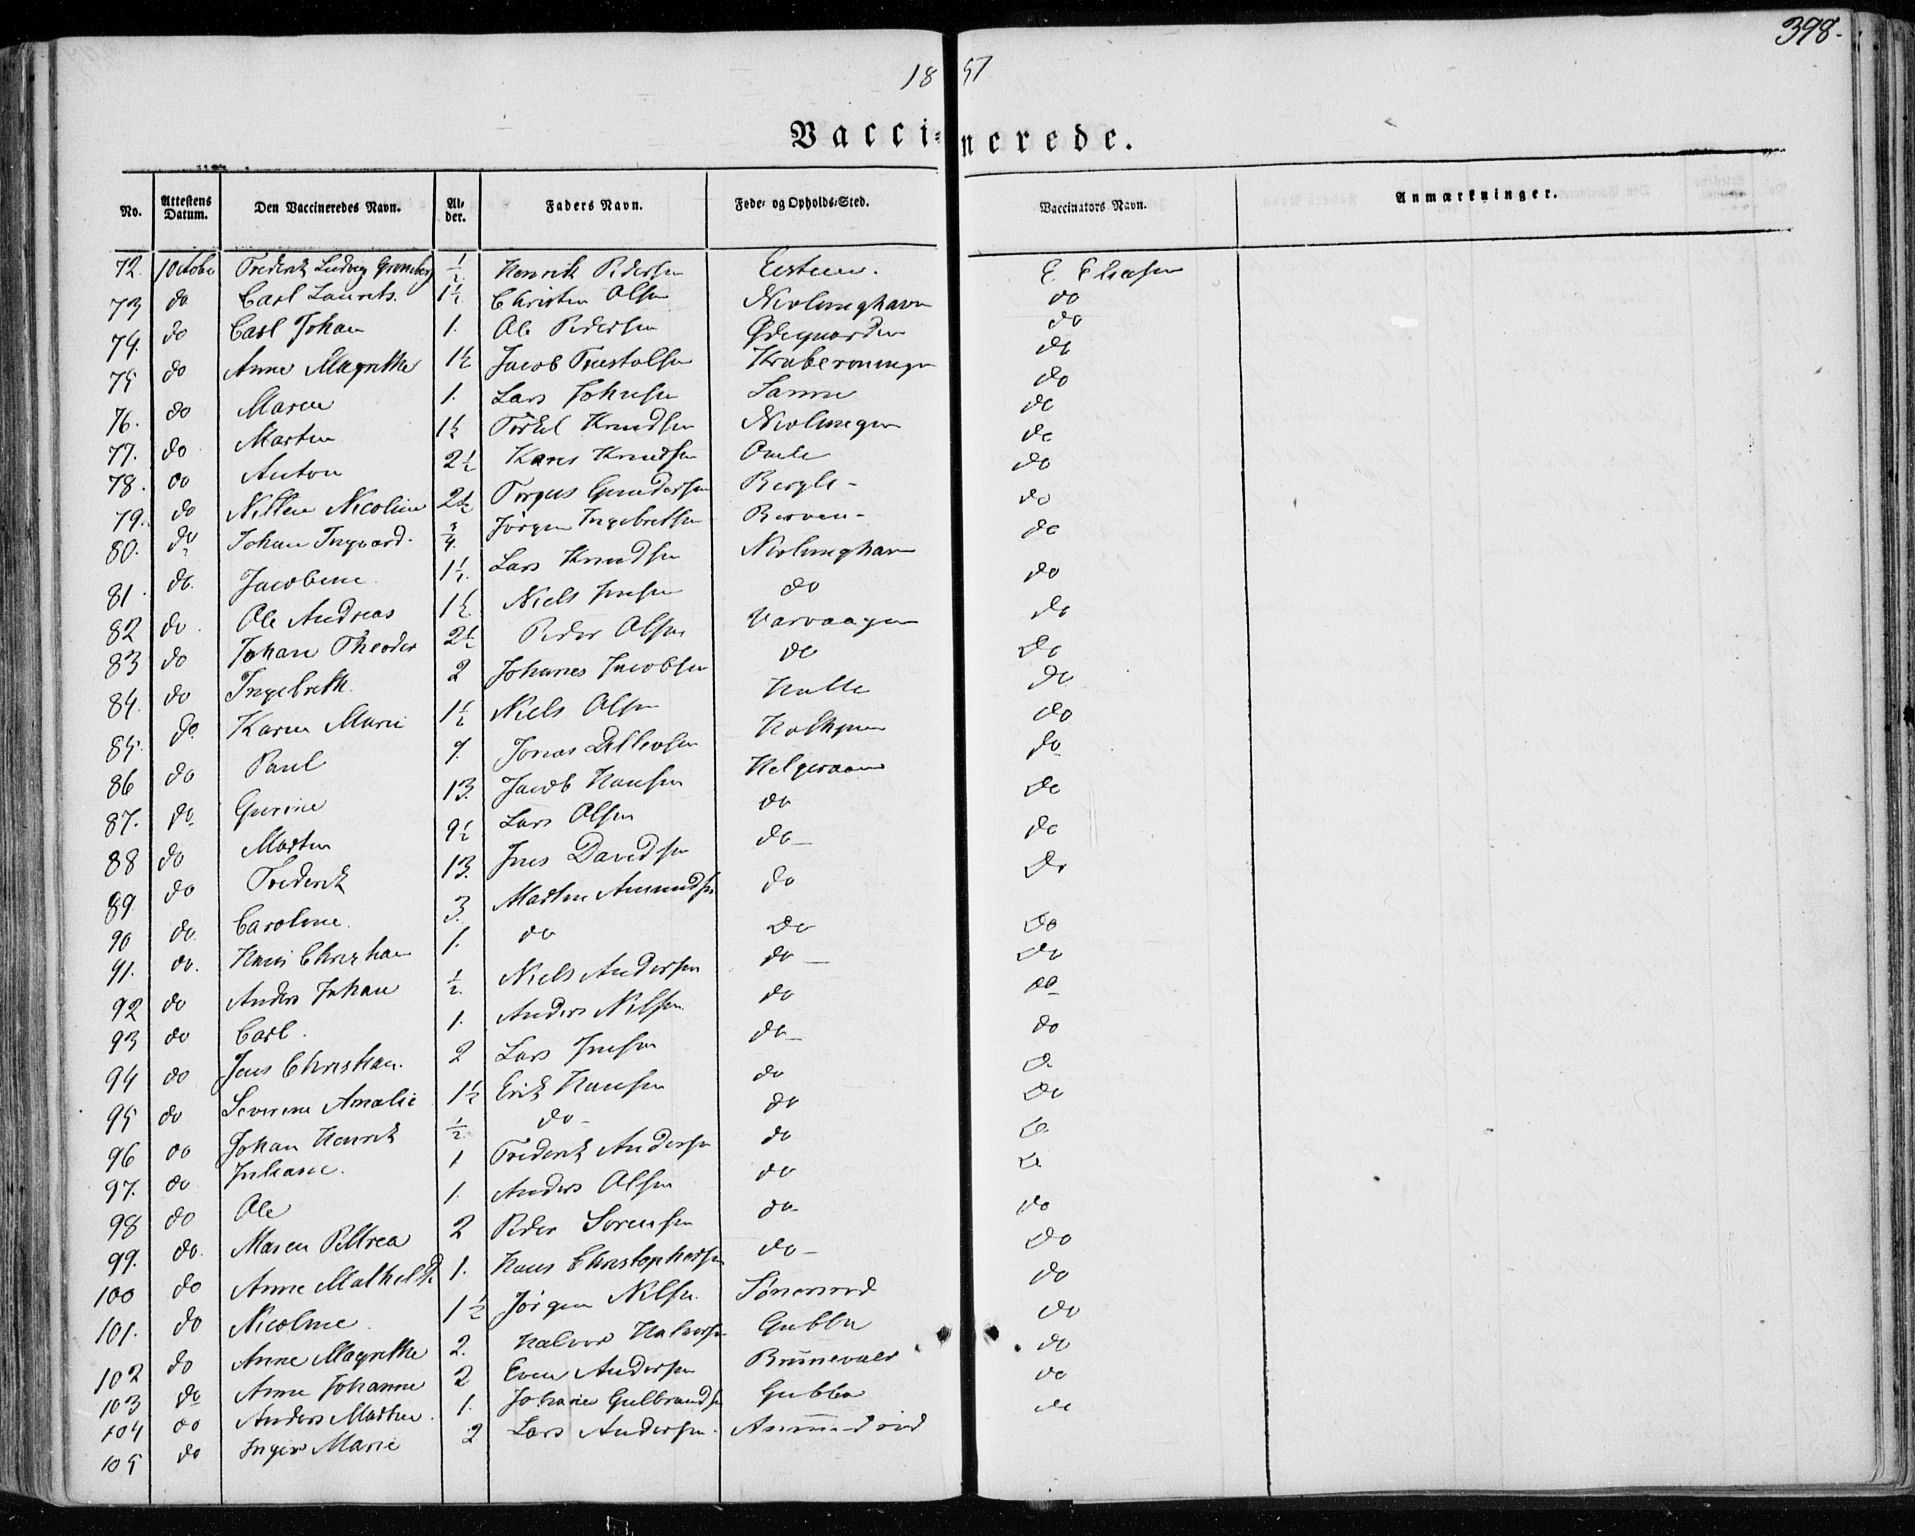 398.
18 51
Vacci= nerede.
No. Attestens Datum. Den Vaccineredes Navn. Al-der. Faders Navn. Føde- og Opholds-Sted. Vaccinators Navn. Anmærkninger.
72. 1 Octobr Frederik Ludvig ½ Henrik Pedersen E. Eliasen
73 do Carl Laurits. 1½ Christen Olsen Nevlunghavn do
74. do Carl Johan 1. Ole Pedersen Ødegaarden do
75 do Anne Magrethe 1½ Jacob do
76. do Maren 1. Lars Johnsen Samme do
77. do Martin 1½ Torkel Knudsen do
78. do Anton 2½ Hans Knudsen Omle do
79. do Nicoline 2½ Torgus Gundersen do
80. do Johan Ingvard. ¾. Jørgen Ingebretsen Berven- do
81. do. Jacobine. 1½. Lars Knudsen Nevlunghavn do
82 do. Ole Andreas 1½. Niels Jensen do do
83 do Johan Theodor 2½ Peder Olsen Varvaagen do
84. do Ingebreth. 2 Johanes Jacobsen do do
85. do. Karen Marie 1½ Niels Olsen Halle do
86 do Paul 7. Jonas Ditlevsen do
87. do Gurine 13. Jacob Hansen Helgeraaen do
88 do Martin 9½ Lars Olsen do do
89. do Frederik 13. Jens Davidsen do do
90 do. Caroline. 3. Martin Amundsen do do
91. do. Hans Christian 1. do do do
92 do Anders Johan ½. Niels Andersen do do
93 do Carl. 1. Anders Nilsen. do do
94 do Jens Christian. 2 Lars Jensen do do
95 do Severine Amalie 1½ Erik Hansen do do
96 do Johan Henrik ½. do- do do
97. do Juliane. 1 Frederik Andersen do do
98 do Ole 1. Anders Olsen do do
99. do. Maren Pettrea 2 Peder Sørensen do do
100 do Anne Mathelde 1. Hans Christophersen do- do
101. do Nicoline. 1½ Jørgen Nilsen. do
102 do Anne Magrethe 2. Halvor Halvorsen Gubba do
103 do Anne Johanne 2 Even Andersen do
104 do Anders Martin. 1. Johanes Gulbrandsen Gubba do
105 do Inger Marie 2 Lars Andersen. Amundrød do